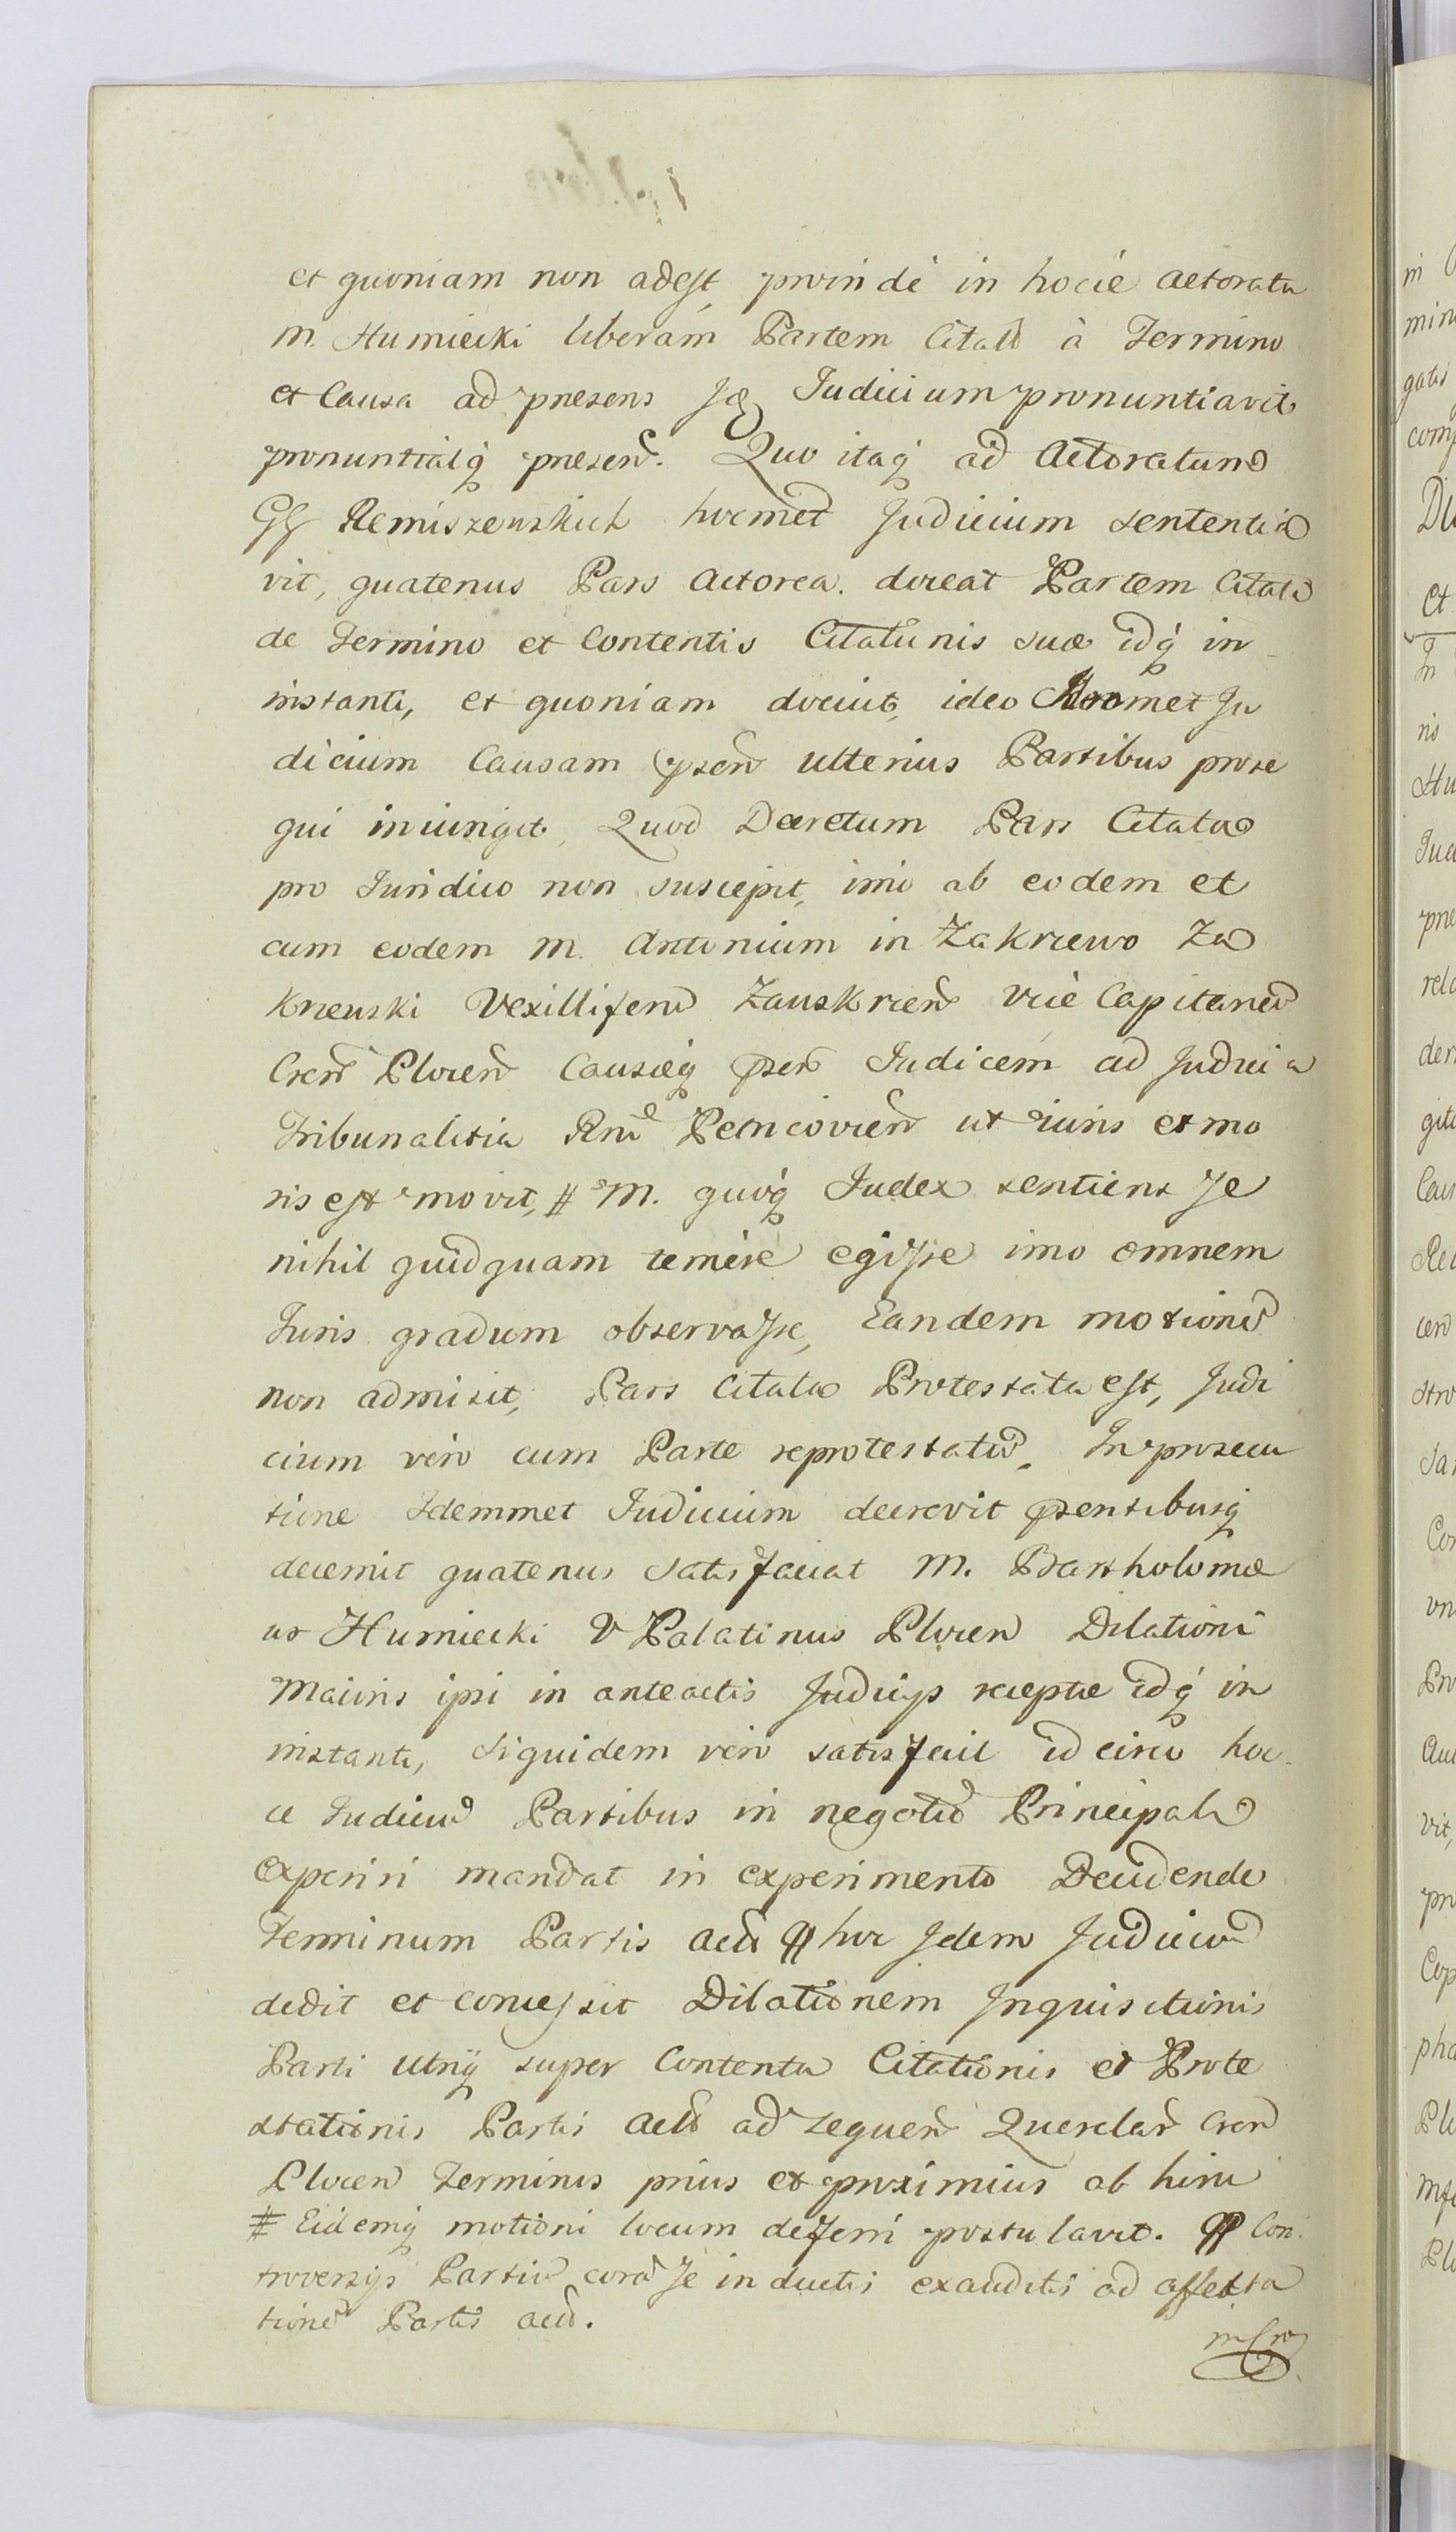 et quoniam non adest, proinde in hocce actoratu
M. Humiecki liberam Partem Citatã à Termino
et Causa ad praesens Judicium pronuntiavit
pronuntiatq̃ praesen̄. Quo itaq̃ ad Actoratum
GG Remiszewskich hocmet Judicium sententia
vit, quatenus Pars Actorea doceat Partem Citatã
de Termino et Contentis Citatiõnis suae idq̃ in
instanti, et quoniam docuit, ideo Hocmet Ju
dicium Causam psen̄ ulterius Partibus prose
qui iniungit, Quod Decretum Pars Citata
pro Juridico non suscepit, imò ab eodem et
cum eodem M. Antonium in Zakrzewo Za
krzewski Vexilliferũ Zawskrzen̄ Vice Capitaneũ
Cren̄ Plocen̄ Causaeq̃ psen̄ Judicem ad Judicia
Tribunalitia Rnĩ Petricovien̄ ut iuris et mo
ris est movit, # M. quoq̃ Judex sentiens se
nihil quidquam temere egisse imo omnem
Juris gradum observasse, Eandem motionẽ
non admisit, Pars Citata Protestata est, Judi
cium vero cum Parte reprotestatũ. In prosecu
tione Idemmet Judicium decrevit psentibusq̃
decernit quatenus satisfaciat M. Bartholomae
us Humiecki V Palatinus Plocen̄ Dilationi
Maioris ipsi in anteactis Judicijs receptae idq̃ in
instanti, siquidem vero satisfecit idcirco hoc
ce Judiciũ Partibus in negotio Principali
experiri mandat in experimento Decidendo
Terminum Partis Actã ꟼꟼ hoc Idem Judiciũ
dedit et concessit Dilationem Inquisitionis
Parti utriq̃ super Contenta Citationis et Prote
stationis Partis Actã ad sequen̄ Querelar̃ Cren̄
Plocen̄ Terminis prius et proximius ab hinc
# Eidemq̃ motioni locum deferri postulavit. ꟼꟼ Con
troversijs Partiũ corã se inductis exauditis ad affecta
tionẽ Partis actã.